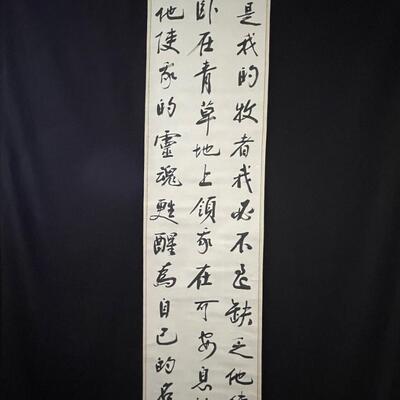 是我的牧者我必不至缺乏他使
臥在青草地上領我在可安息
他使我的靈魂甦醒為自己的名